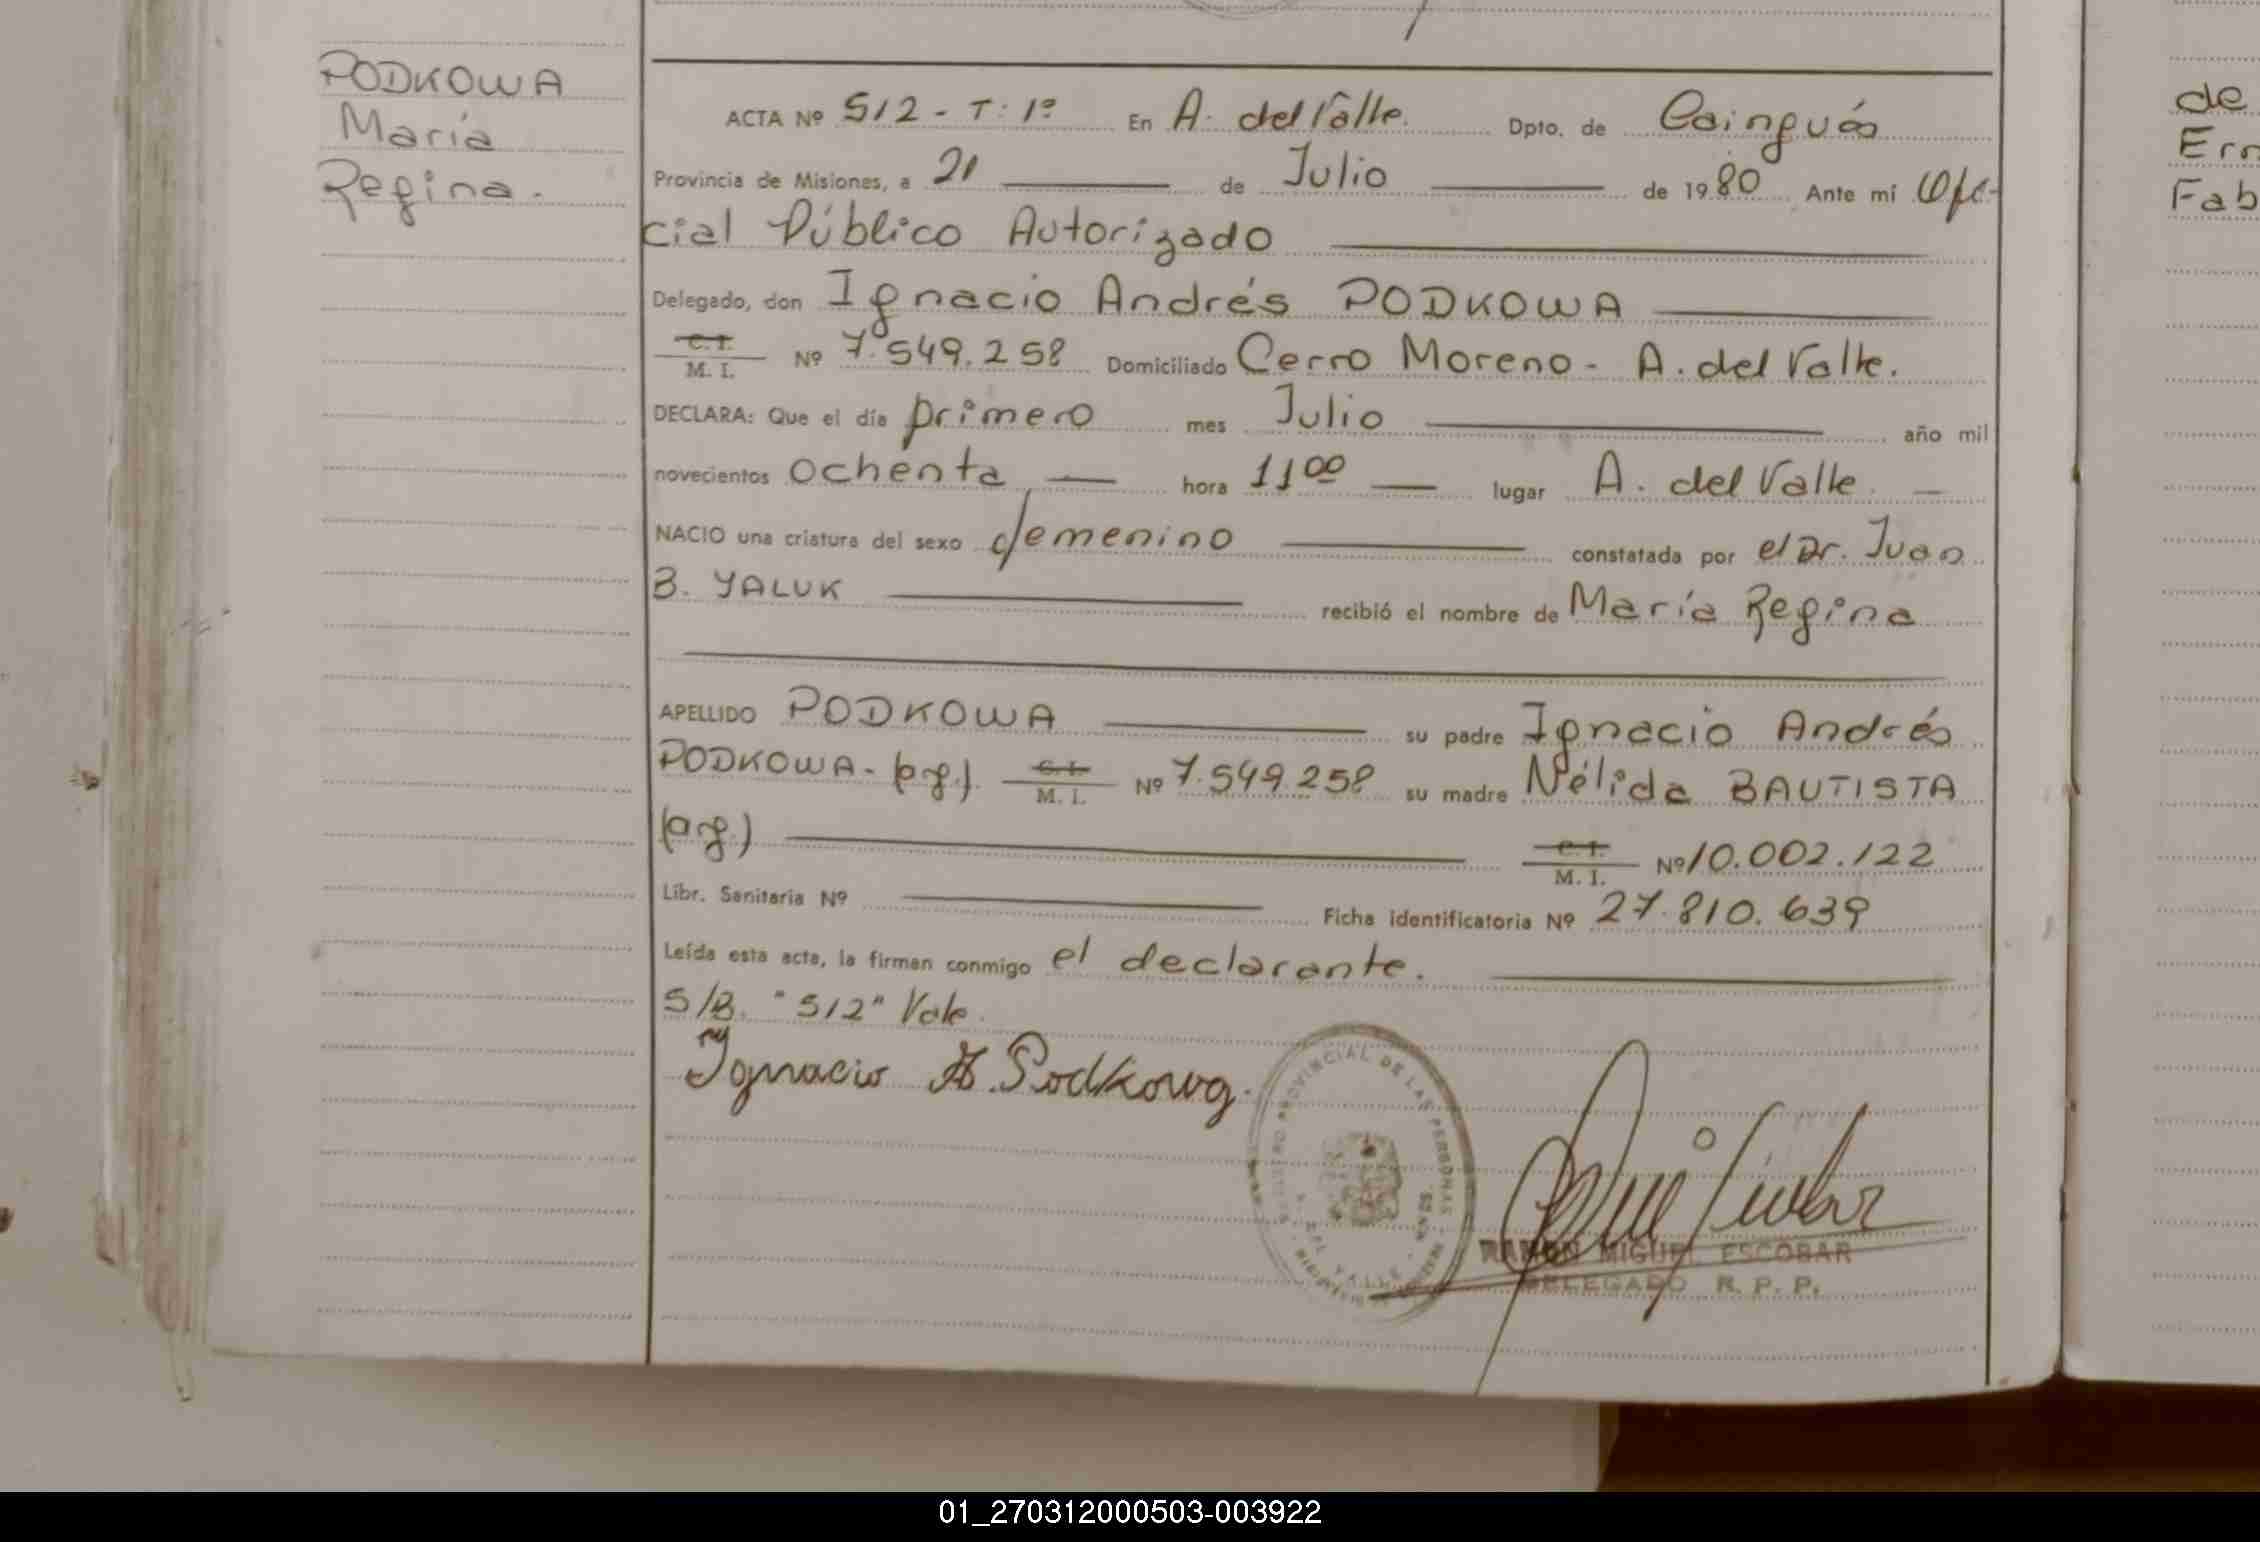 PODKOWA
María
Regina.
ACTA Nº 512 - T: 1º En A. del Valle. Dpto. de Cainguás
Provincia de Misiones, a 21 de Julio de 1980 Ante mí Ofi-
cial Público Autorizado
Delegado, don Ignacio Andrés PODKOWA
C.I. M. I. Nº 7.549.258 Domiciliado Cerro Moreno - A. del Valle.
DECLARA: Que el día primero mes Julio año mil
novecientos ochenta hora 11 00 lugar A. del Valle.
NACIO una criatura del sexo femenino constatada por el Dr. Juan
B. YALUK recibió el nombre de María Regina
APELLIDO PODKOWA su padre Ignacio Andrés
PODKOWA - (arg.). C.I. M. I. Nº 7.549.258 su madre Nélida BAUTISTA
(arg.) C.I. M. I. Nº 10.002.122
Libr. Sanitaria Nº Ficha identificatoria Nº 27.810.639
Leída esta acta, la firman conmigo el declarante.
S/B. "512" Vale.
Ignacio A. Podkowa.
REGISTRO PROVINCIAL DE LAS PERSONAS
A. DEL VALLE
RAMON MIGUEL ESCOBAR
DELEGADO R. P. P.
de
Ern
Fab
01_270312000503-003922